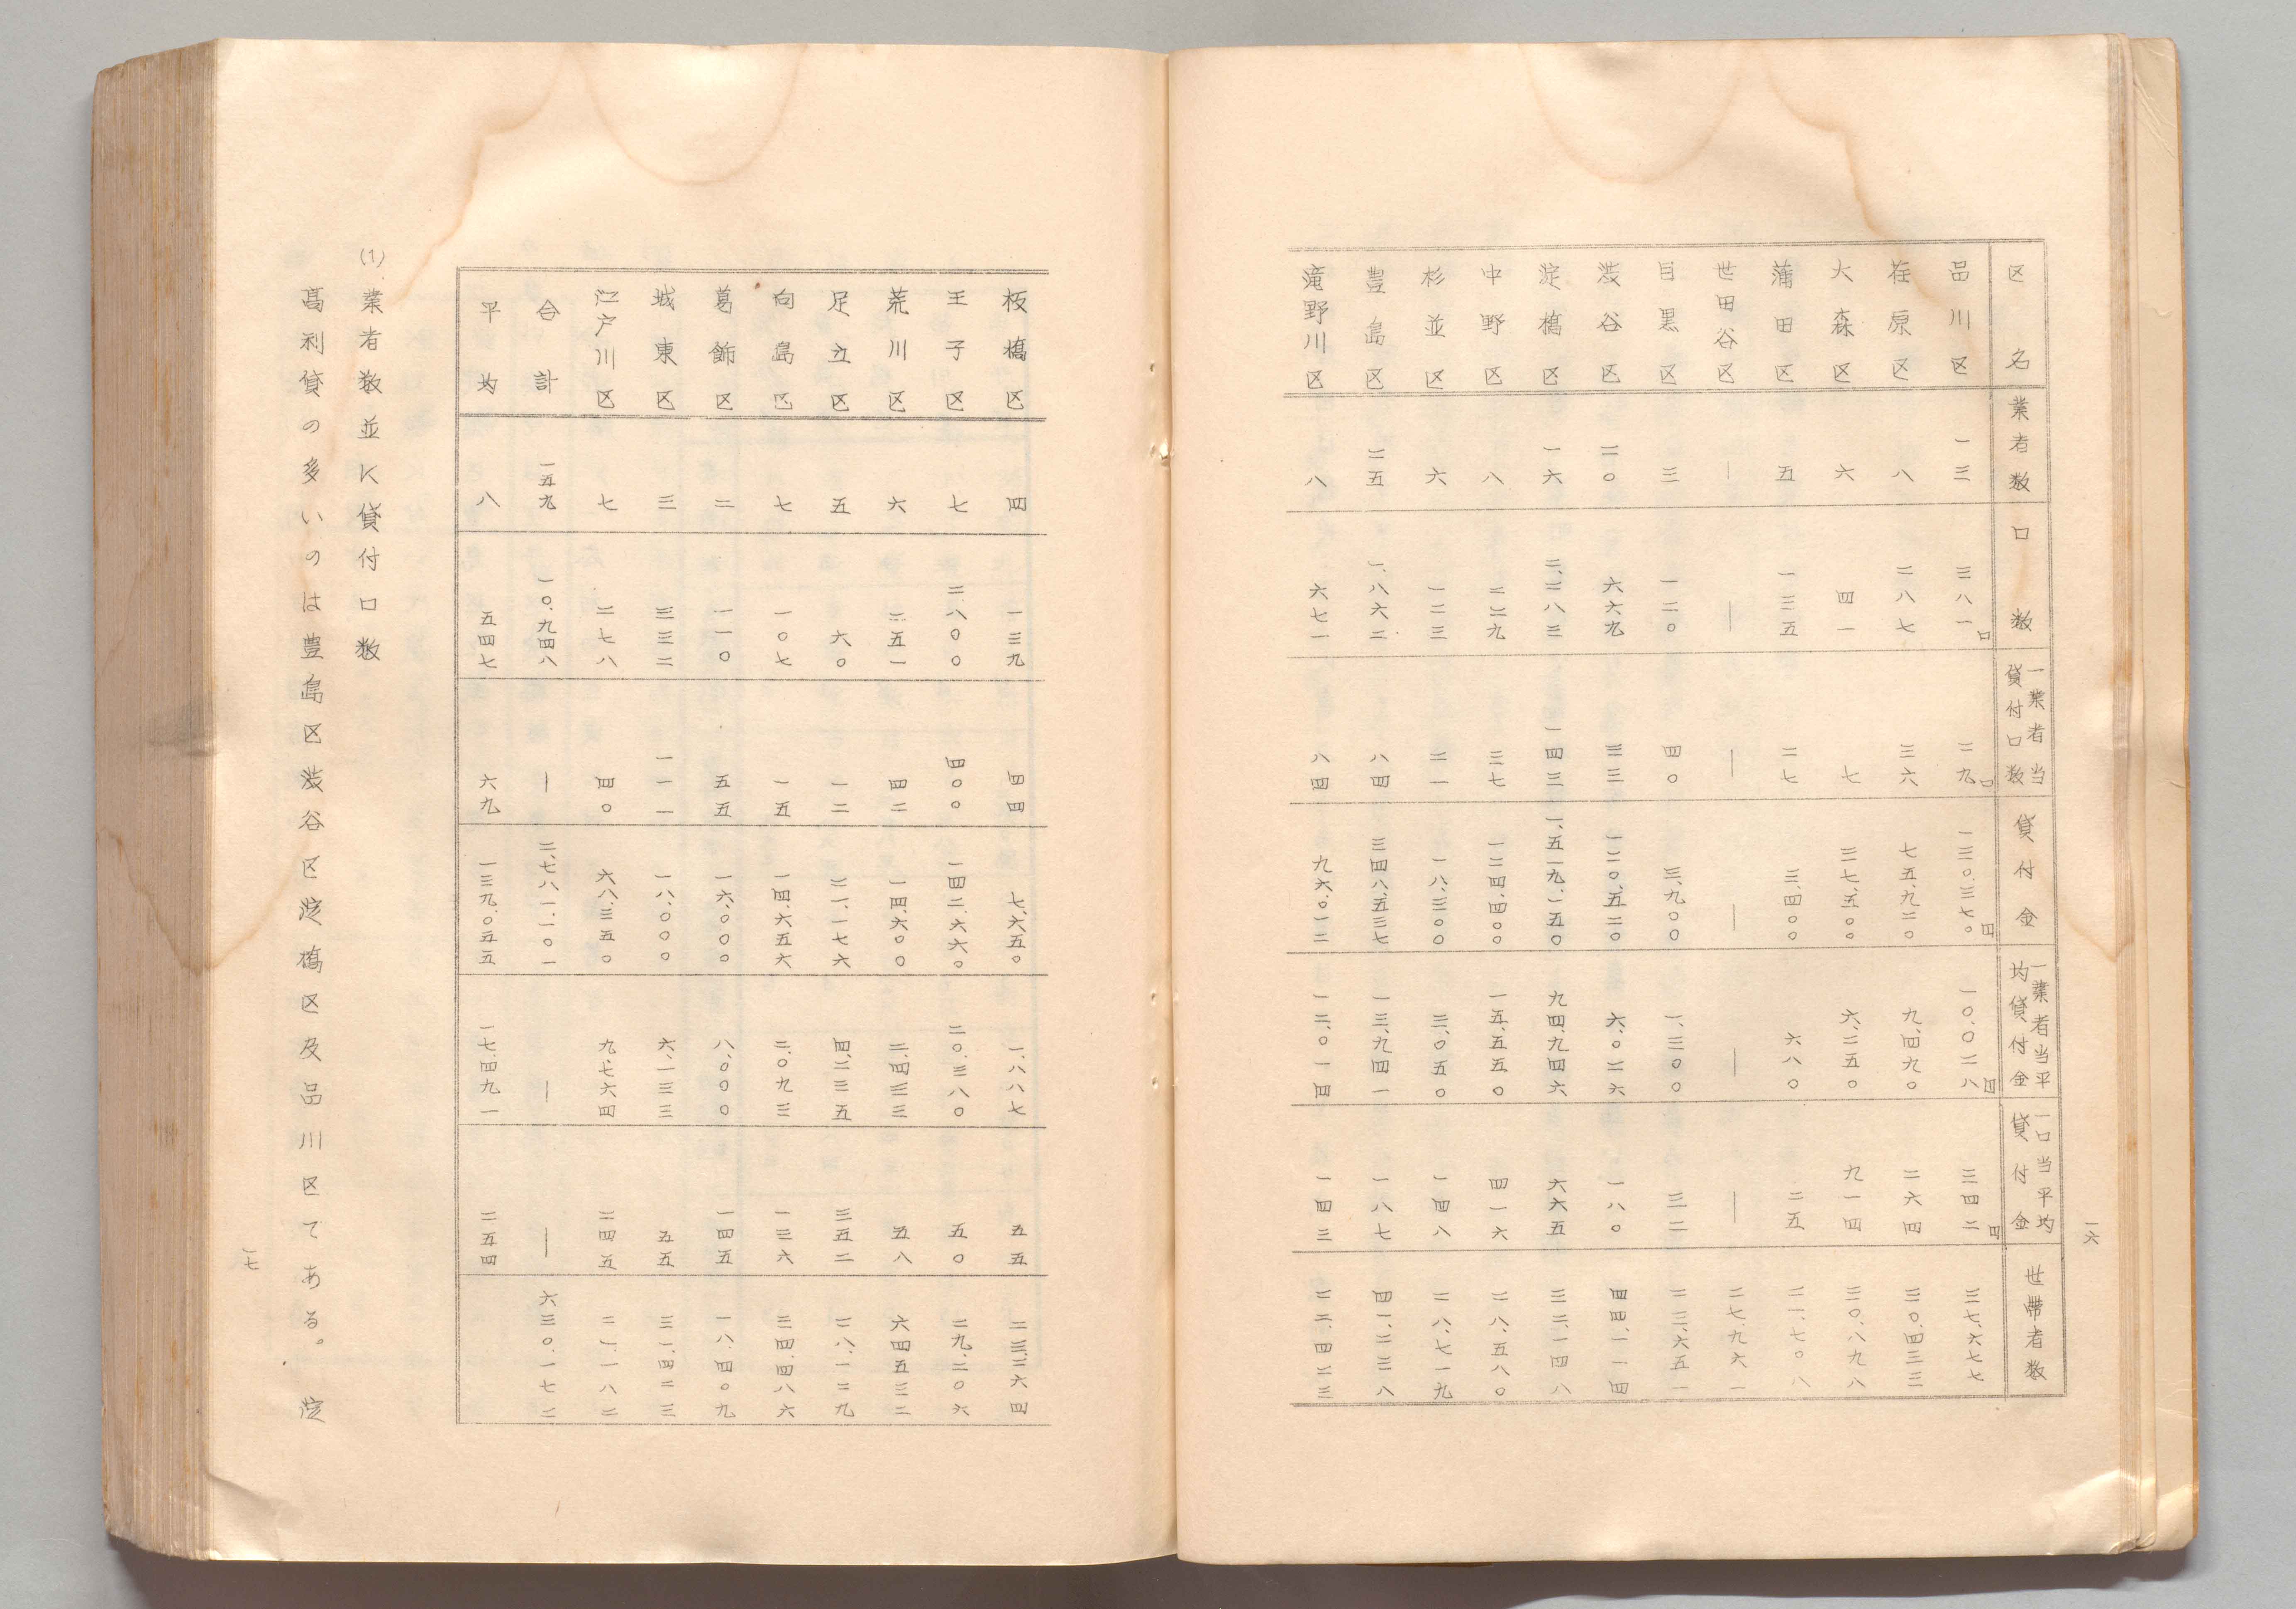 一六
区名 業者数 口数 一業者当貸付口数 貸付金 一業者当平均貸付金 一口当平均貸付金 世帯者数
品川区 一三 三八一口 二九口 一三〇、三七〇円 一〇、〇二八円 三四二円 三七、六七七
荏原区 八 二八七 三六 七五、九二〇 九、四九〇 二六四 三〇、四三三
大森区 六 四一 七 三七、五〇〇 六、二五〇 九一四 三〇、八九八
蒲田区 五 一三五 二七 三、四〇〇 六八〇 二五 二一、七〇八
世田谷区 — — — — — — 二七、九六一
目黒区 三 一二〇 四〇 三、九〇〇 一、三〇〇 三二 二三、六五一
渋谷区 二〇 六六九 三三 一二〇、五二〇 六、〇二六 一八〇 四四、一一四
淀橋区 一六 二、二八三 一四三 一、五一九、一五〇 九四、九四六 六六五 三二、一四八
中野区 八 二二九 三七 一二四、四〇〇 一五、五五〇 四一六 二八、五八〇
杉並区 六 一二三 二一 一八、三〇〇 三、〇五〇 一四八 二八、七一九
豊島区 二五 一、八六二 八四 三四八、五三七 一三、九四一 一八七 四一、二三八
滝野川区 八 六七一 八四 九六、〇一二 一二、〇一四 一四三 二二、四二三
板橋区 四 一三九 四四 七、六五〇 一、八八七 五五 二三、三六四
王子区 七 二、八〇〇 四〇〇 一四二、六六〇 二〇、三八〇 五〇 二九、二〇六
荒川区 六 二五一 四二 一四、六〇〇 二、四三三 五八 六四五三二
足立区 五 六〇 一二 二一、一七六 四、二三五 三五二 二八、一二九
向島区 七 一〇七 一五 一四、六五六 二、〇九三 一三六 三四、四八六
葛飾区 二 一一〇 五五 一六、〇〇〇 八、〇〇〇 一四五 一八、四〇九
城東区 三 三三二 一一一 一八、〇〇〇 六、一三三 五五 三一、四二三
江戸川区 七 二七八 四〇 六八、三五〇 九、七六四 二四五 二一、一八二
合計 一五九 一〇、九四八 — 二、七八一、一〇一 — — 六三〇、一七二
平均 八 五四七 六九 一三九、〇五五 一七、四九一 二五四
(1)、業者数並に貸付口数
高利貸の多いのは豊島区渋谷区淀橋区及品川区である。淀
一七